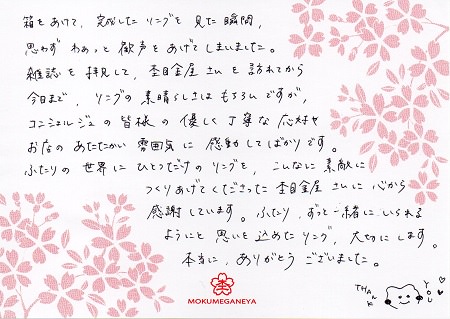 箱をあけて、完成したリングを見た瞬間、
思わずわぁっと歓声をあげてしまいました。
雑誌を拝見して、杢目金屋さんを訪れてから
今日まで、リングの素晴らしさはもちろんですが、
コンシェルジュの皆様の優しく丁寧な応対や
お店のあたたかい雰囲気に感動してばかりです。
ふたりの世界にひとつだけのリングを、こんなに素敵に
つくりあげてくださった杢目金屋さんに心から
感謝しています。ふたり、ずっと一緒にいられる
ようにと思いを込めたリング、大切にします。
本当に、ありがとうございました。
杢
MOKUMEGANEYA
THANK YOU